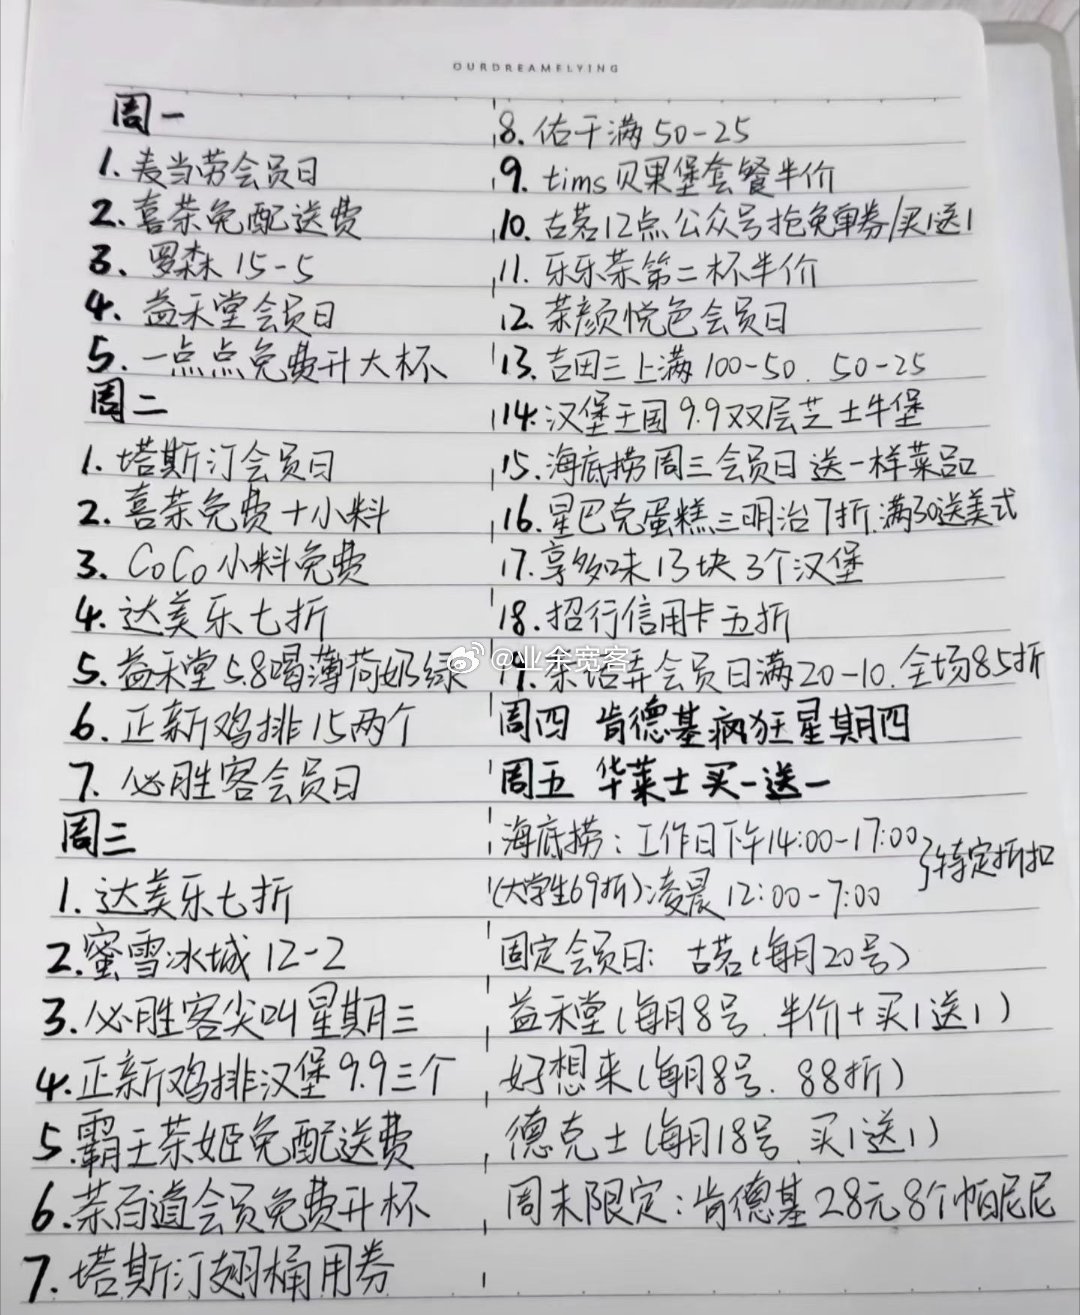 OURDREAMELYING
周一
1. 麦当劳会员日
2. 喜茶免配送费
3. 罗森 15-5
4. 益禾堂会员日
5. 一点点免费升大杯
周二
1. 塔斯汀会员日
2. 喜茶免费+小料
3. CoCo小料免费
4. 达美乐七折
5. 益禾堂5.8喝薄荷奶绿
6. 正新鸡排15两个
7. 必胜客会员日
周三
1. 达美乐七折
2. 蜜雪冰城12-2
3. 必胜客尖叫星期三
4. 正新鸡排汉堡9.9三个
5. 霸王茶姬免配送费
6. 茶百道会员免费升杯
7. 塔斯汀翅桶用券
8. 佑千满50-25
9. tims贝果堡套餐半价
10. 古茗12点公众号抢免单券/买1送1
11. 乐乐茶第二杯半价
12. 茶颜悦色会员日
13. 吉田三上满100-50. 50-25
14. 汉堡王国9.9双层芝士牛堡
15. 海底捞周三会员日送一样菜品
16. 星巴克蛋糕三明治7折.满30送美式
17. 享多味13块3个汉堡
18. 招行信用卡五折
19. 茶话弄会员日满20-10.全场8.5折
周四 肯德基疯狂星期四
周五 华莱士买一送一
海底捞:工作日下午14:00-17:00
(大学生69折)凌晨12:00-7:00 }特定折扣
固定会员日: 古茗(每月20号)
益禾堂(每月8号.半价+买1送1)
好想来(每月8号. 88折)
德克士(每月18号.买1送1)
周末限定:肯德基28元8个帕尼尼
@业余宽客